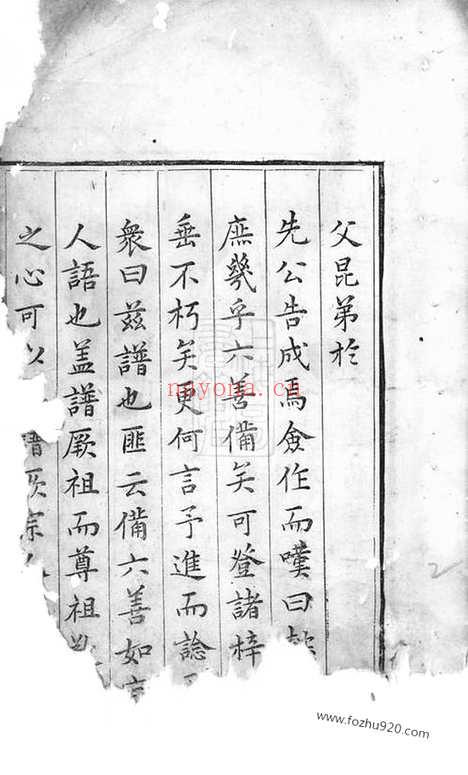 父昆弟於
先公告成焉僉作而嘆曰
庶幾乎六善備矣可登諸梓
垂不朽矣更何言予進而諗
衆曰茲譜也匪云備六善如
人語也盖譜厥祖而尊祖
之心可以譜厥宗
nayona.cn
2
www.fozhu920.com